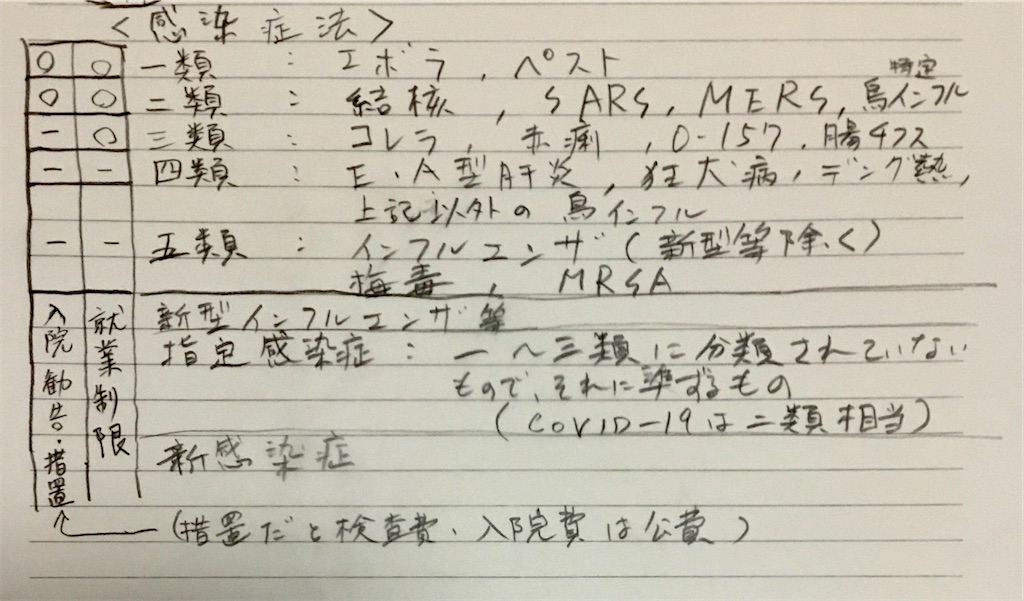 ＜感染症法＞
○ ○ 一類 : エボラ, ペスト
特定
○ ○ 二類 : 結核, SARS, MERS, 鳥インフル
- ○ 三類 : コレラ, 赤痢, O-157, 腸チフス
- - 四類 : E・A型肝炎, 狂犬病, デング熱,
上記以外の鳥インフル
- - 五類 : インフルエンザ(新型等除く)
梅毒, MRSA
入院勧告・措置
就業制限
新型インフルエンザ等
指定感染症 : 一〜三類に分類されていない
もので、それに準ずるもの
(COVID-19は二類相当)
新感染症
(措置だと検査費・入院費は公費)